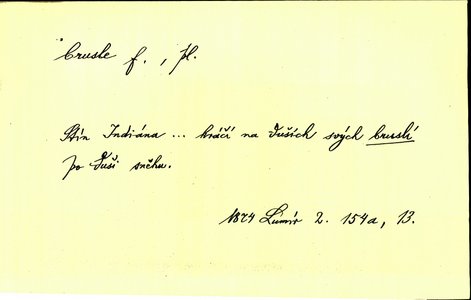 brusle f., pl.
Stín Indiána ... kráčí na duších svých bruslí
po duši sněhu.
1874 Lumír 2. 154a, 13.